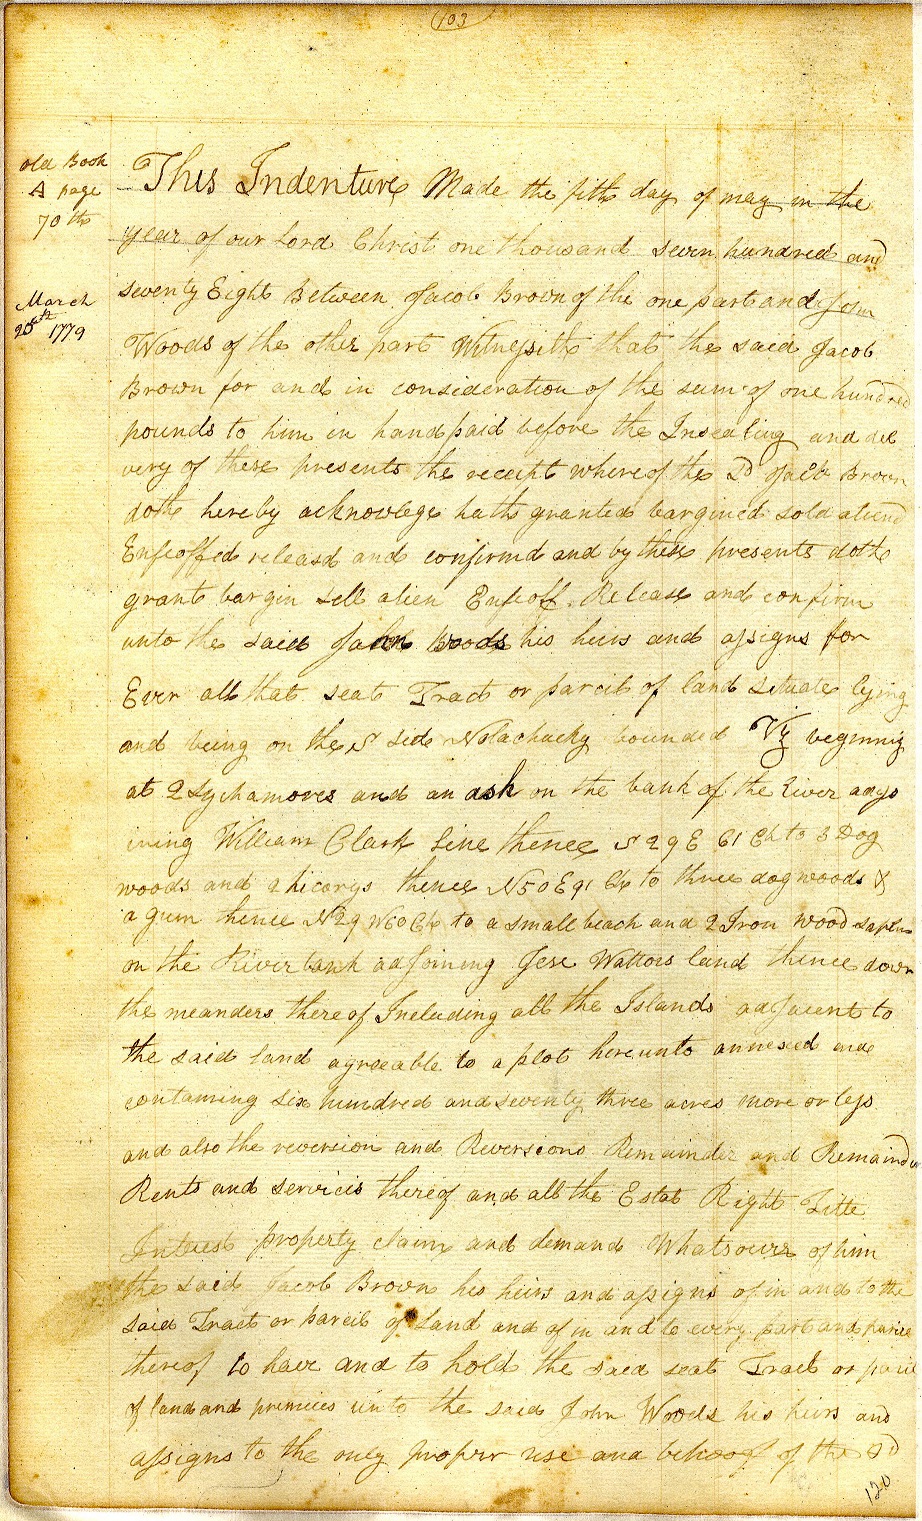 103
old Book
A page
70th
March
20th 1779
This Indenture Made the fith day of may in the
year of our Lord Christ one thousand Seven hundred and
seventy Eight Between Jacob Brown of the one part and John
Woods of the other part Witnesseth that the said Jacob
Brown for and in consideration of the sum of one hundred
pounds to him in hand paid before the Insealing and deli
very of these presents the receipt where of the Sd Jacob Brown
doth hereby acknowlege hath granted bargined sold aliend
Enfeoffed releasd and confirmd and by these presents doth
grant bargin sell alien Enfeoff Release and confirm
unto the said John Woods his heirs and assigns for
Ever all that seat Tract or parcil of land situate lying
and being on the S side Nolachucky bounded Viz beginnig
at 2 Sychamores and an ash on the bank of the River adjo
ining William Clark line thence S 29 E 61 Ch to 3 Dog
woods and 2 hicorys thence N50E 91 Ch to three dogwoods &
a gum thence N 29 W 60 Ch to a small beach and 2 Iron wood saplins
on the River bank adjoining Jese Wattors land thence down
the meanders thereof Including all the Islands adjacent to
the said land agreeable to a plot hereunto annexed and
containing six hundred and seventy three acres more or less
and also the reversion and Reversions Remainder and Remainder
Rents and servicis thereof and all the Estat Right Title
Interest property claim and demand Whatsover of him
the said Jacob Brown his heirs and assigns of in and to the
said Tract or parcil of Land and of in and to every part and parcil
thereof to have and to hold the said seat Tract or parcil
of land and premices unto the said John Woods his heirs and
assigns to the only proper use and behoof of the Sd
120